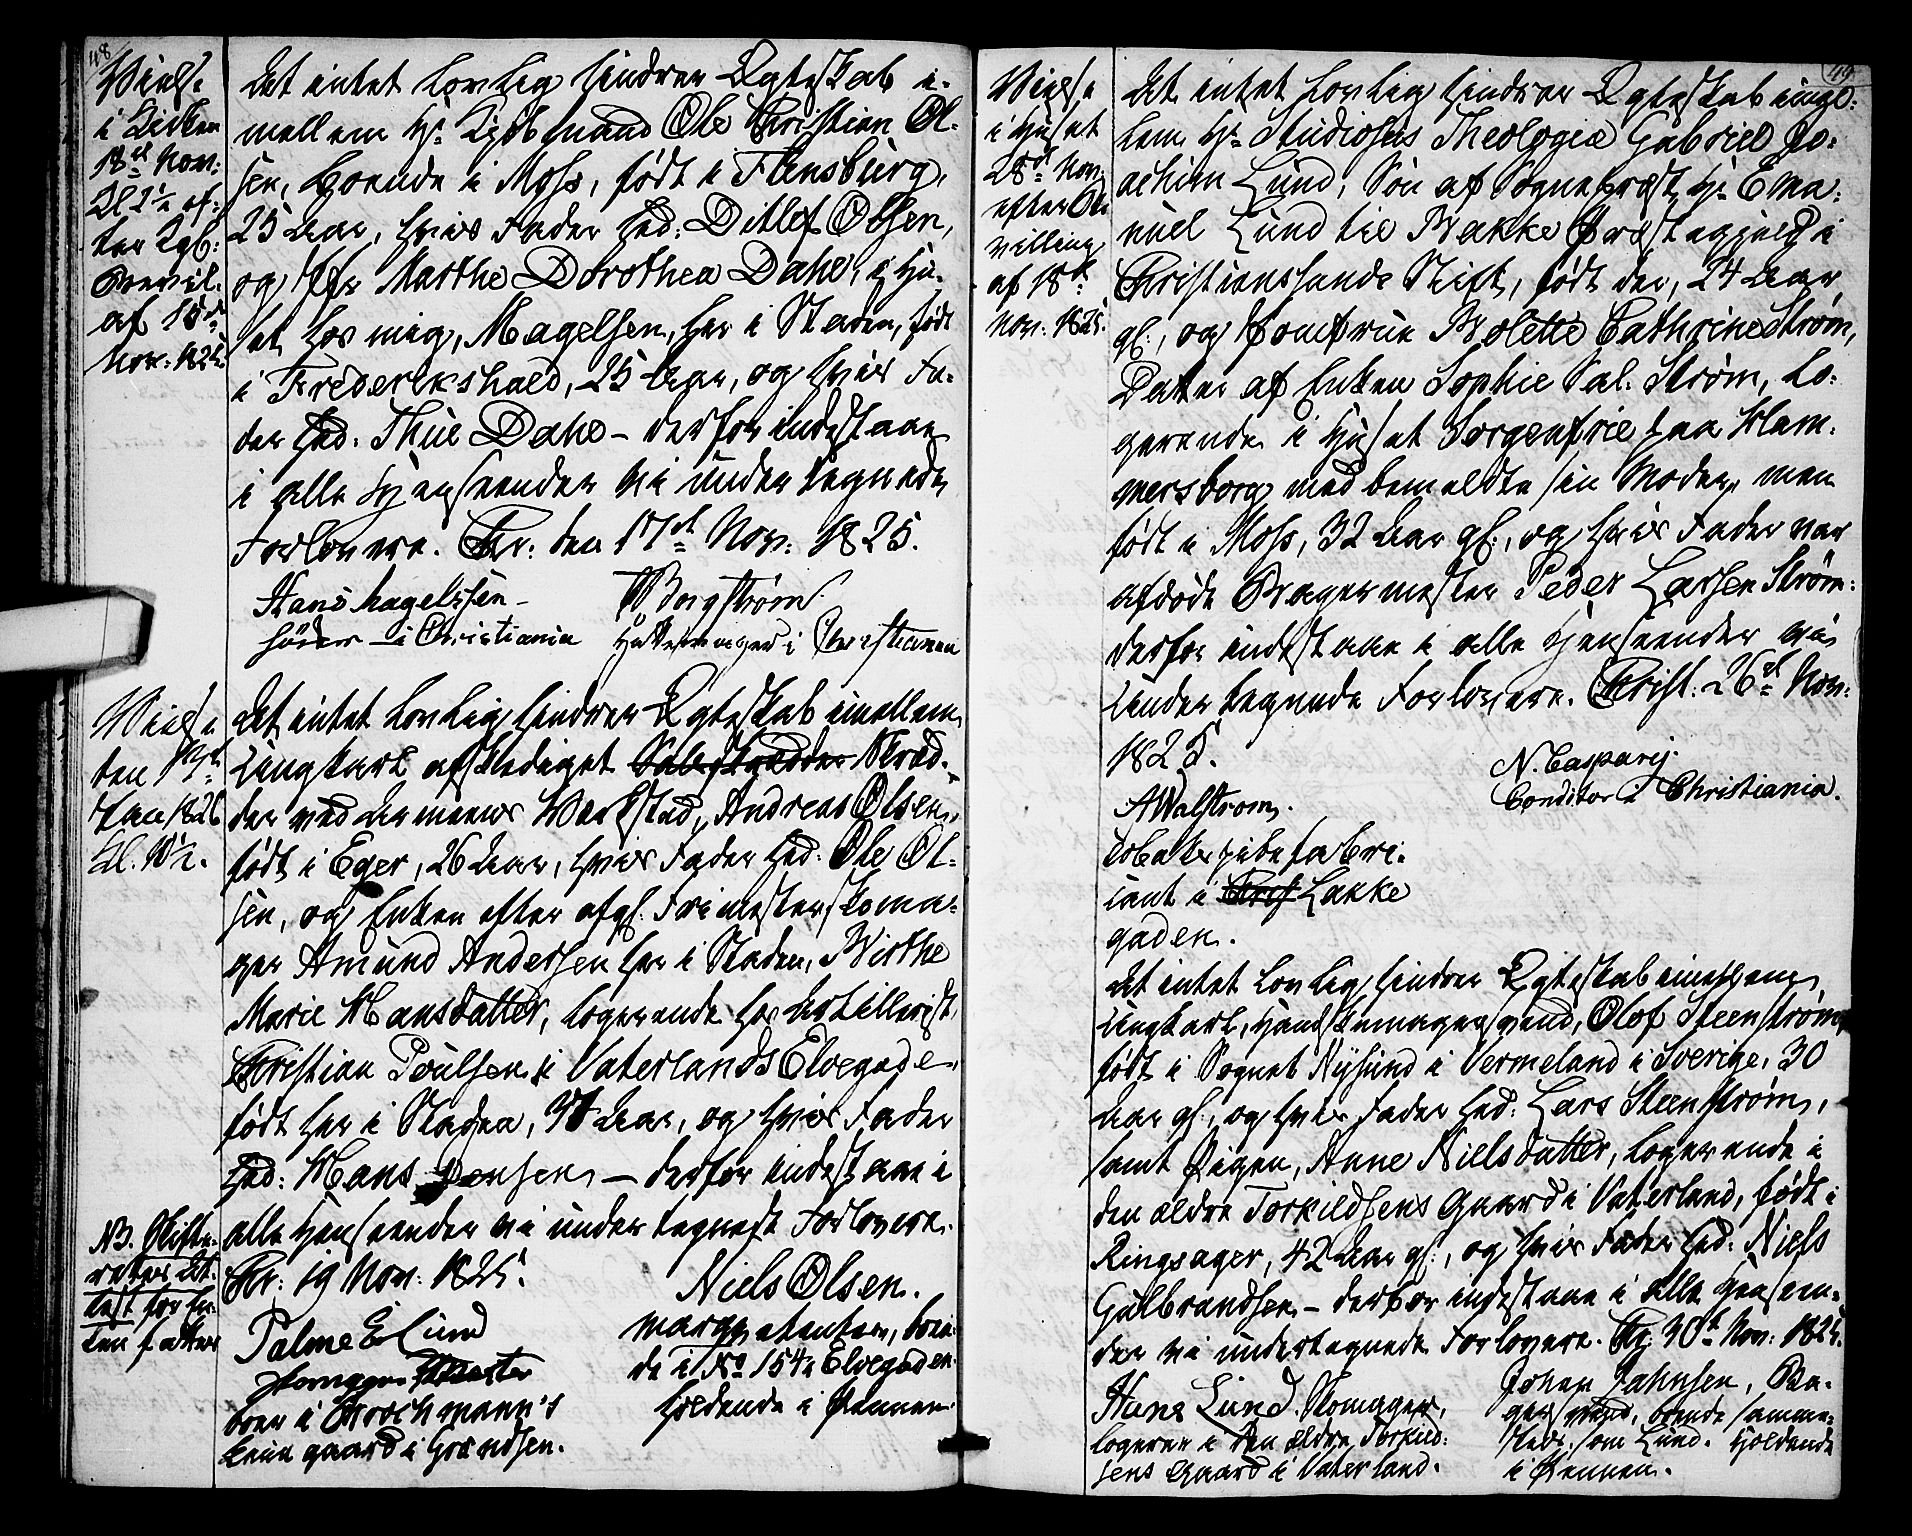 48
Vielse
i Kirken
18de Nov:
Kl 2½ ef-
ter Kgl:
Bevil:
af 15de
Nov: 1825.
At intet lovlig hindrer Ægteskab i-
mellem Hr. Kjøbmand Ole Christian Ol-
sen, boende i Moss, født i Flensburg,
25 Aar, hvis Fader hed: Ditlef Olsen,
og Jfr Marthe Dorothea Dahe, i Hu-
set hos mig, Magelsen, her i Staden, født
i Frederikshald, 25 Aar, og hvis Fa-
der hed: Thue Dahe – derfor indestaae
i alle Henseender vi undertegnede
Forlovere. Chr: den 17de Nov: 1825.
Hans Magelssen
i Christiania
Borgstrøm
i Christiania
Vielse
den
Jan 1826
Kl. 10½.
At intet lovlig hindrer Ægteskab imellem
Ungkarl afskediget Skræd-
der ved Armeens Værksted, Andreas Olsen,
født i Eger, 26 Aar, hvis Fader hed: Ole Ol-
sen, og Enken efter afg: Frimester Skoma-
ger Amund Andersen her i Staden, Birthe
Marie Hansdatter, logerende hos Artillerist
Christian Poulsen i Vaterlands Elvegade,
født her i Staden, Aar, og hvis Fader
hed: Hans Jensen – derfor indestaae i
alle Henseender vi undertegnede Forlovere.
NB. Skifte-
rettes At-
test for En-
ken fattes
Chr: 19 Nov: 1825.
Palme E Lund
boer i Brochmann's
gaard i Grændsen.
Niels Olsen.
Marquetenter, boen-
de i No 154 Elvegaden.
holdende i Pennen.
49
Vielse
i Huset
28de Nov:
efter Be
villing
af 18de
Nov: 1825.
At intet lovlig hindrer Ægteskab imel-
lem Hr Studiosus Theologiæ Gabriel Jo-
achim Lund, Søn af Sognepræst Hr Ema-
nuel Lund til Bakke Præstegjeld i
Christianssands Stift, født der, 24 Aar
gl:, og Jomfrue Bolette Cathrine Strøm,
Datter af Enken Sophie Sal: Strøm, lo-
gerende i Huset Sorgenfrie paa Ham-
mersborg med bemeldte sin Moder, men
født i Moss, 32 Aar gl:, og hvis Fader var
afdøde Bagermester Peder Larsen Strøm:
derfor indestaae i alle Henseender vi
undertegnede Forlovere. Christ: 26de Nov:
1825.
A Walstrom.
Tobakspibefabri-
cant i Lakke
gaden.
N. Casparij.
Conditor i Christiania.
At intet lovlig hindrer Ægteskab imellem
Ungkarl, Handskemagersvend, Olof Steenstrøm,
født i Sognet Nysund i Vermeland i Sverige, 30
Aar gl:, og hvis Fader hed: Lars Steenstrøm,
samt Pigen, Anne Nielsdatter, logerende i
den ældre Torkildsens Gaard i Vaterland, født i
Ringsager, 42 Aar gl:, og hvis Fader hed: Niels
Gulbrandsen – derfor indestaae i alle Henseen-
der vi undertegnede Forlovere. Chr: 30te Nov: 1825.
Hans Lund. Skomager,
logerer i den ældre Torkild-
sens Gaard i Vaterland.
Johan Jahnsen, Ba-
gersvend, boende samme-
steds som Lund. Holdende
i Pennen.